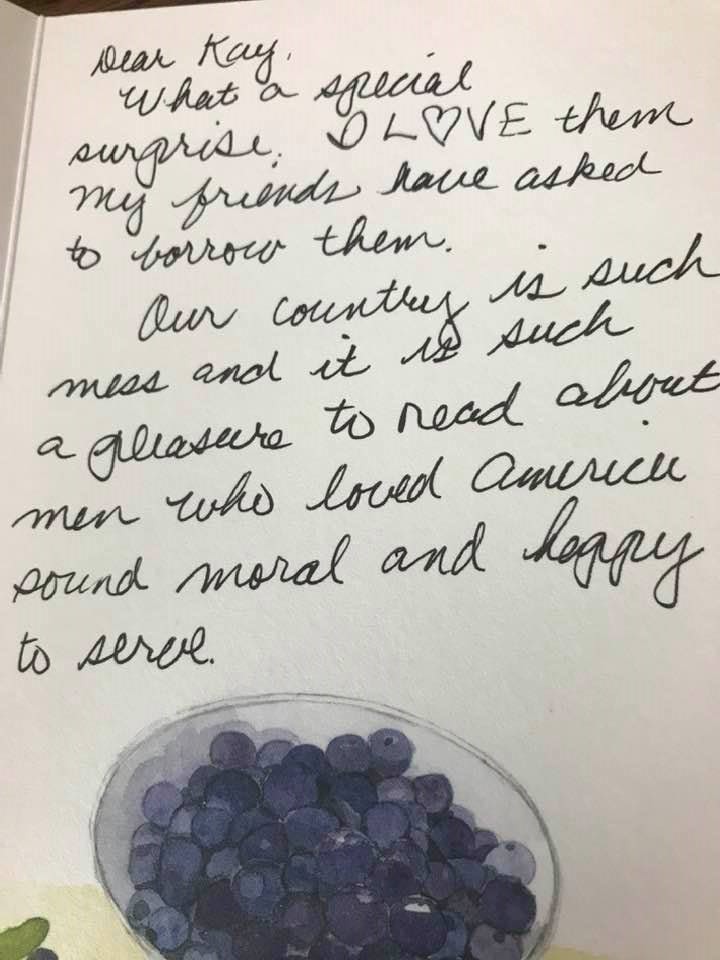 Dear Kay,
What a special
surprise. I L♡VE them
my friends have asked
to borrow them.
Our country is such
mess and it is such
a pleasure to read about
men who loved America
sound moral and happy
to serve.